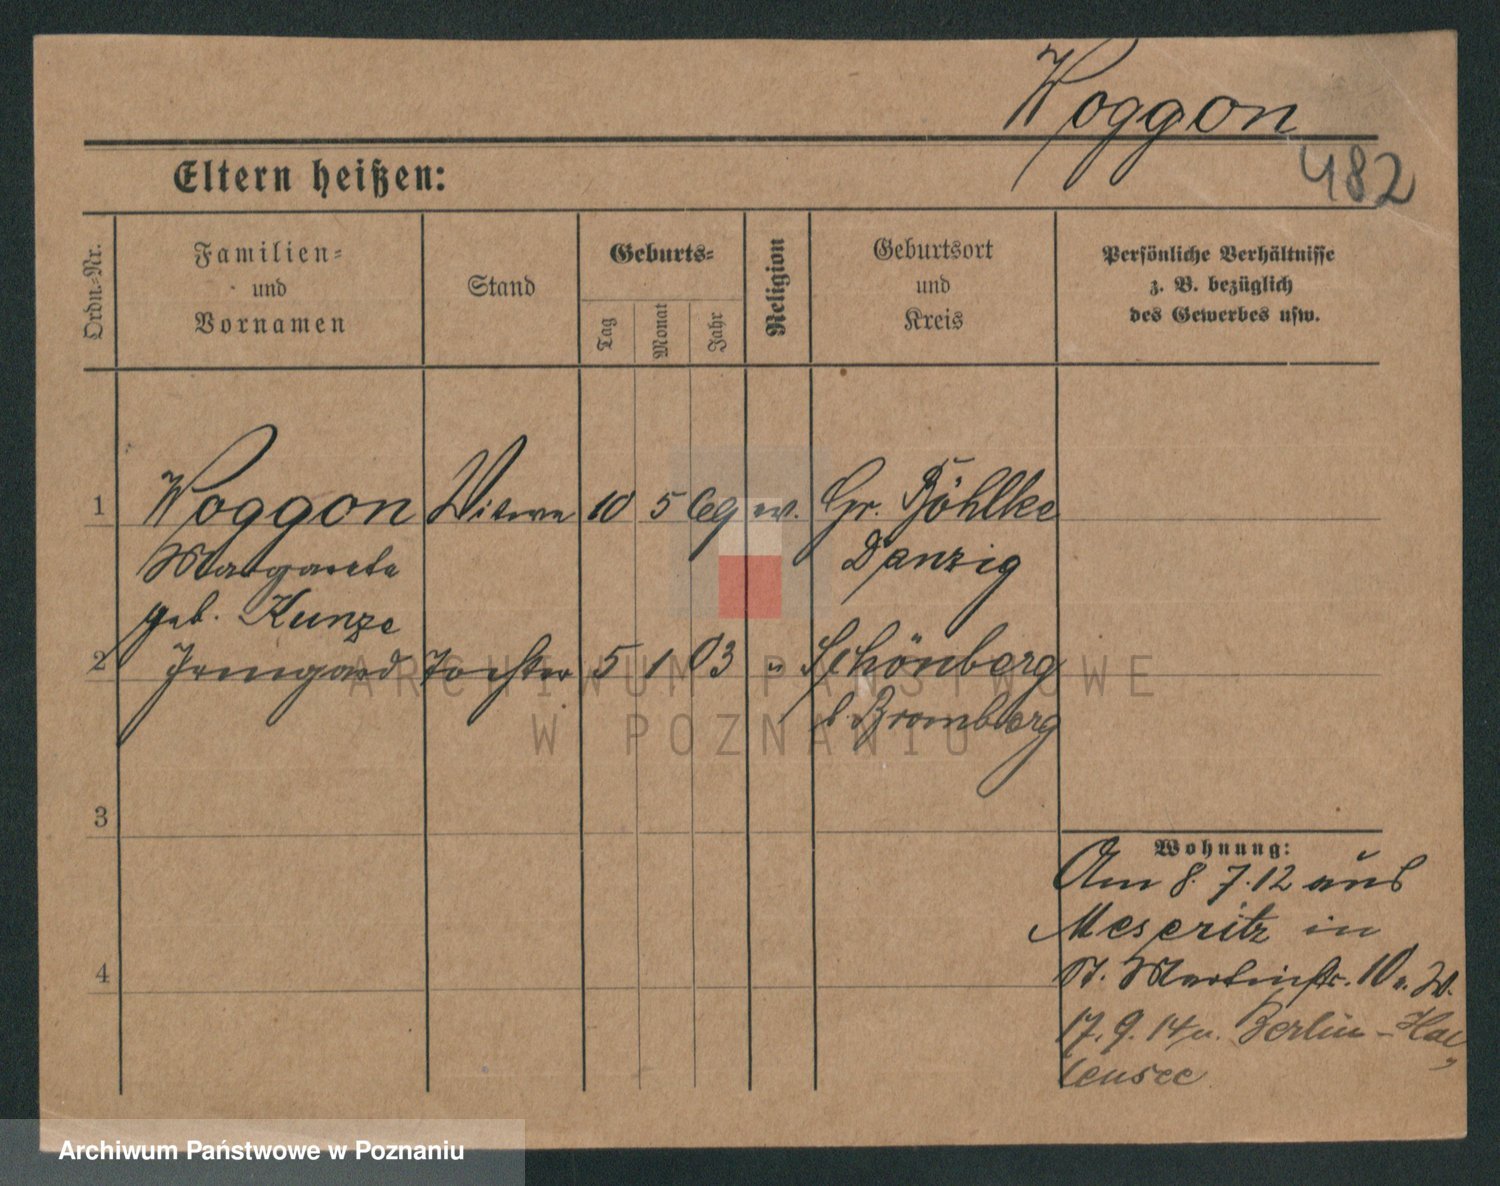 Woggon
482
Eltern heißen:
Ordn.-Nr.
Familien-
und
Vornamen
Stand
Geburts-
Tag
Monat
Jahr
Religion
Geburtsort
und
Kreis
Persönliche Verhältnisse
z. B. bezüglich
des Gewerbes usw.
1 Woggon Witwe 10 5 69 ev. Gr. Böhlke
Margarete Danzig
geb. Kunze
2 Irmgard Tochter 5 1 03 " Schönberg
b. Bromberg
3
4
Wohnung:
Am 8. 7. 12 aus
Meseritz in
St. Martinstr. 10
17. 9. 14 n. Berlin-Hal
lensee
ARCHIWUM PAŃSTWOWE
W POZNANIU
Archiwum Państwowe w Poznaniu